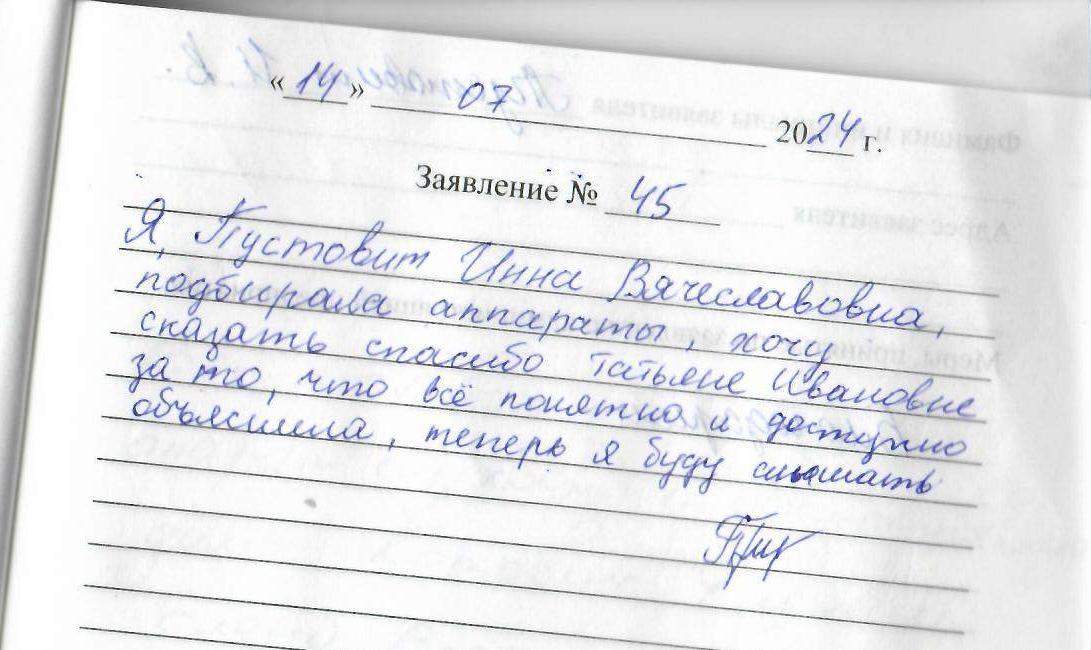 «14» 07 2024 г.
Заявление № 45
Я, Пустовит Инна Вячеславовна,
подбирала аппараты, хочу
сказать спасибо Татьяне Ивановне
за то, что всё понятно и доступно
объяснила, теперь я буду слышать